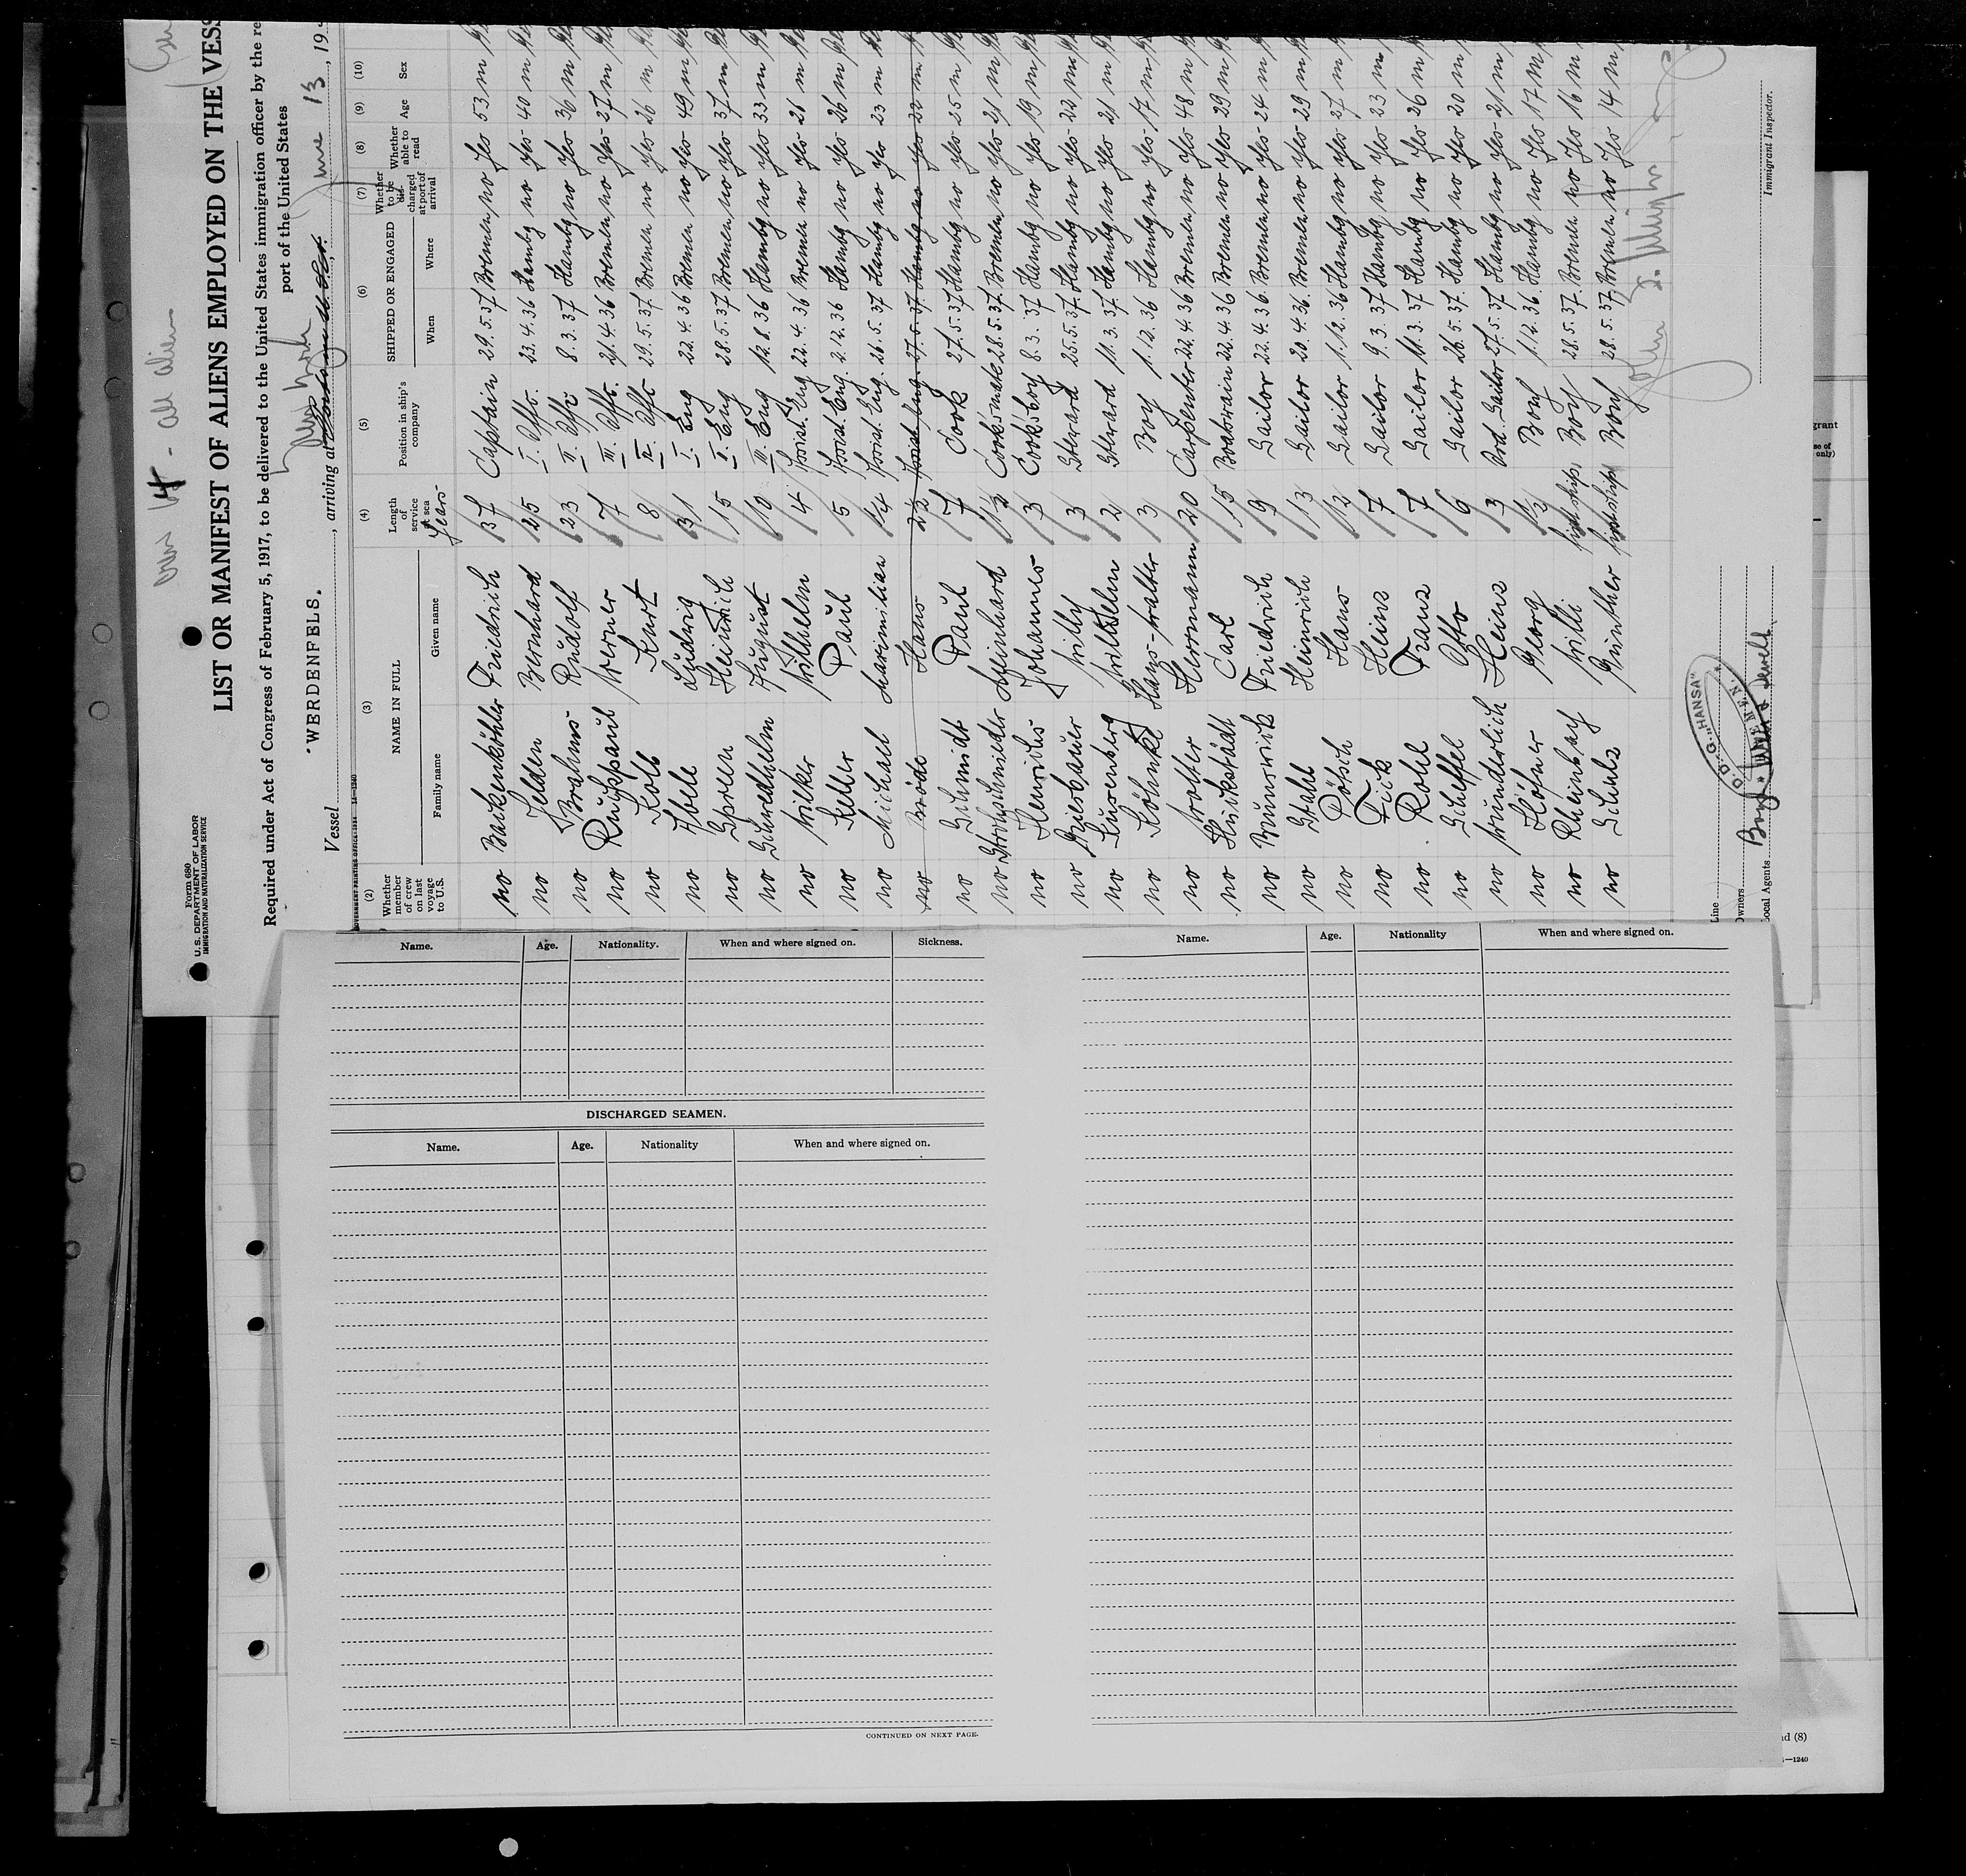 Form 680
U. S. DEPARTMENT OF LABOR
IMMIGRATION AND NATURALIZATION SERVICE
LIST OR MANIFEST OF ALIENS EMPLOYED ON THE VESS
Required under Act of Congress of February 5, 1917, to be delivered to the United States immigration officer by the re
port of the United States
Vessel "WERDENFELS. , arriving at New York , June 13 , 19
(2) (3) (4) (5) (6) (7) (8) (9) (10)
Whether member of crew on last voyage to U.S. NAME IN FULL Length of service at sea Position in ship's company SHIPPED OR ENGAGED Whether to be discharged at port of arrival Whether able to read Age Sex
Family name Given name Years When Where
no Backenköhler Friedrich 37 Captain 29.5.37 Bremen no yes 53 m
no Jelden Bernhard 25 I. Offc. 23.4.36 Hambg no yes 40 m
no Brahms Rudolf 23 II. Offc 8.3.37 Hambg no yes 36 m
no Ruhspaul Werner 7 III. Offc. 21.4.36 Bremen no yes 27 m
no Kolb Kurt 8 IV. Offc 29.5.37 Bremen no yes 26 m
no Abele Ludwig 31 I. Eng 22.4.36 Bremen no yes 49 m
no Spreen Heinrich 15 II. Eng 28.5.37 Bremen no yes 37 m
no Schmedthelm August 10 III. Eng 12.8.36 Hambg no yes 33 m
no Wilker Wilhelm 4 Assist. Eng 22.4.36 Bremen no yes 26 m
no Keller Paul 5 Assist. Eng. 2.12.36 Hambg no yes 26 m
no Michael Maximilian 1/4 Assist. Eng. 26.5.37 Hambg no yes 23 m
no Bröde Hans 2½ Assist. Eng. 27.5.37. Hambg no yes 22 m
no Schmidt Paul 7 Cook 27.5.37 Hambg no yes 25 m
no Strohschnieder Meinhard 1½ Cooksmate 28.5.37. Bremen no yes 21 m
no Henrichs Johannes 3 Cooksboy 8.3.37 Hambg no yes 19 m
no Griesbauer Willy 3 Steward 25.5.37. Hambg no yes 22 m
no Kusenberg Wilhelm 2 Steward 11.3.37. Hambg no yes 21 m
no Köhnke Hans-Walter 3 Boy 1.12.36 Hambg no yes 17 m
no Wolter Hermann 20 Carpenter 22.4.36 Bremen no yes 48 m
no Huckstädt Carl 15 Boatswain 22.4.36 Bremen no yes 29 m
no Brunswick Friedrich 9 Sailor 22.4.36. Bremen no yes 24 m
no Stahl Heinrich 13 Sailor 20.4.36. Bremen no yes 29 m
no Pötsch Hans 12 Sailor 1.12.36 Hambg no yes 27 m
no Fick Heinz 7 Sailor 9.3.37 Hambg no yes 23 m
no Rohl Franz 7 Sailor 11.3.37 Hambg no yes 26 m
no Scheffel Otto 6 Sailor 26.5.37. Hambg no yes 20 m
no Wunderlich Heinz 3 Ord. Sailor 27.5.37 Hambg no yes 21 m
no Höfner Georg 1½ Boy 1.12.36. Hambg no yes 17 m
no Rheinbay Willi first ship Boy 28.5.37. Bremen no yes 16 m
no Schulz Günther first ship Boy 28.5.37 Bremen no yes 14 m
Line
Owners
Local Agents
D. D. G. "HANSA"
BREMEN.
Immigrant Inspector.
Name. Age. Nationality. When and where signed on. Sickness.
DISCHARGED SEAMEN.
Name. Age. Nationality When and where signed on.
CONTINUED ON NEXT PAGE.
Name. Age. Nationality When and where signed on.
grant
se of
only)
nd (8)
—1240